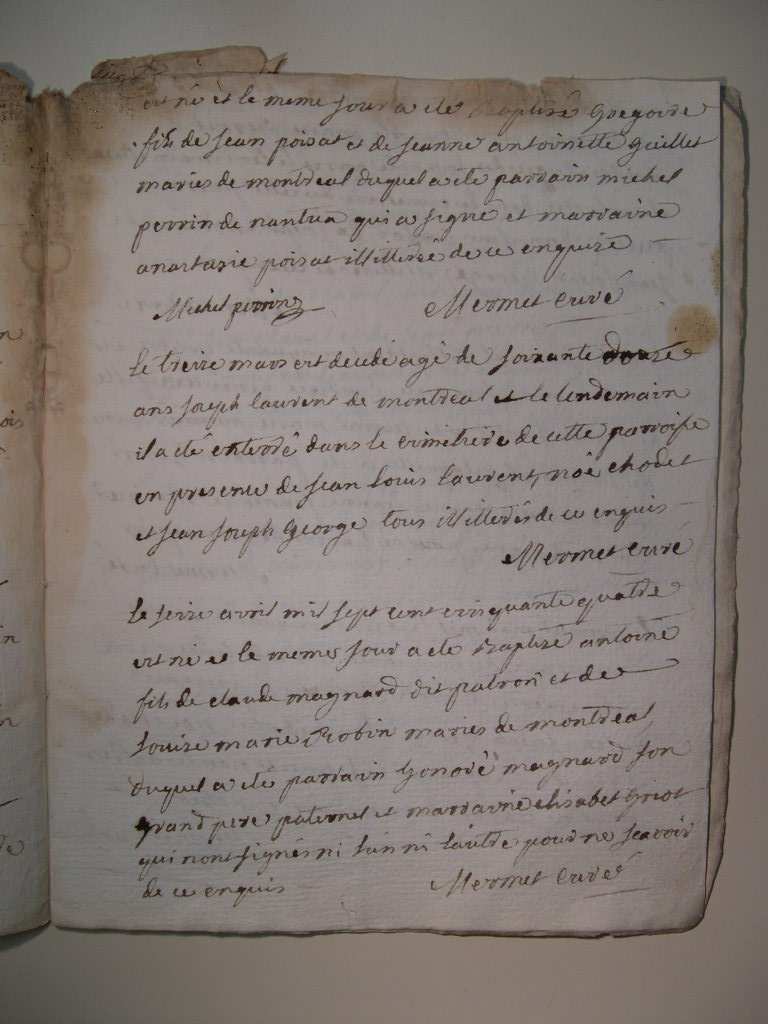 est né et le meme jour a ete Baptisé Gregoire
fils de jean poisat et de jeanne antoinette Guillet
maries de montreal duquel a ete parrain michel
perrin de nantua qui a signé et marraine
anastasie poisat illitterée de ce enquise
Michel perrin Mermet curé
Le treize mars est decedé agé de soixante douze
ans joseph laurent de montreal et le lendemain
il a eté enterré dans le cimetiere de cette parroisse
en presence de jean Louis laurent, noê chodet
et jean joseph George tous illitterés de ce enquis
Mermet curé
Le seize avril mil sept cent cinquante quatre
est né et le memes jour a ete Baptisé antoine
fils de claude magnard dit patron et de
louise marie Robin maries de montreal
duquel a eté parrain honoré magnard son
grand pere paternel et marraine elisabet Griot
qui nont signés ni lun ni lautre pour ne scavoir
de ce enquis Mermet curé